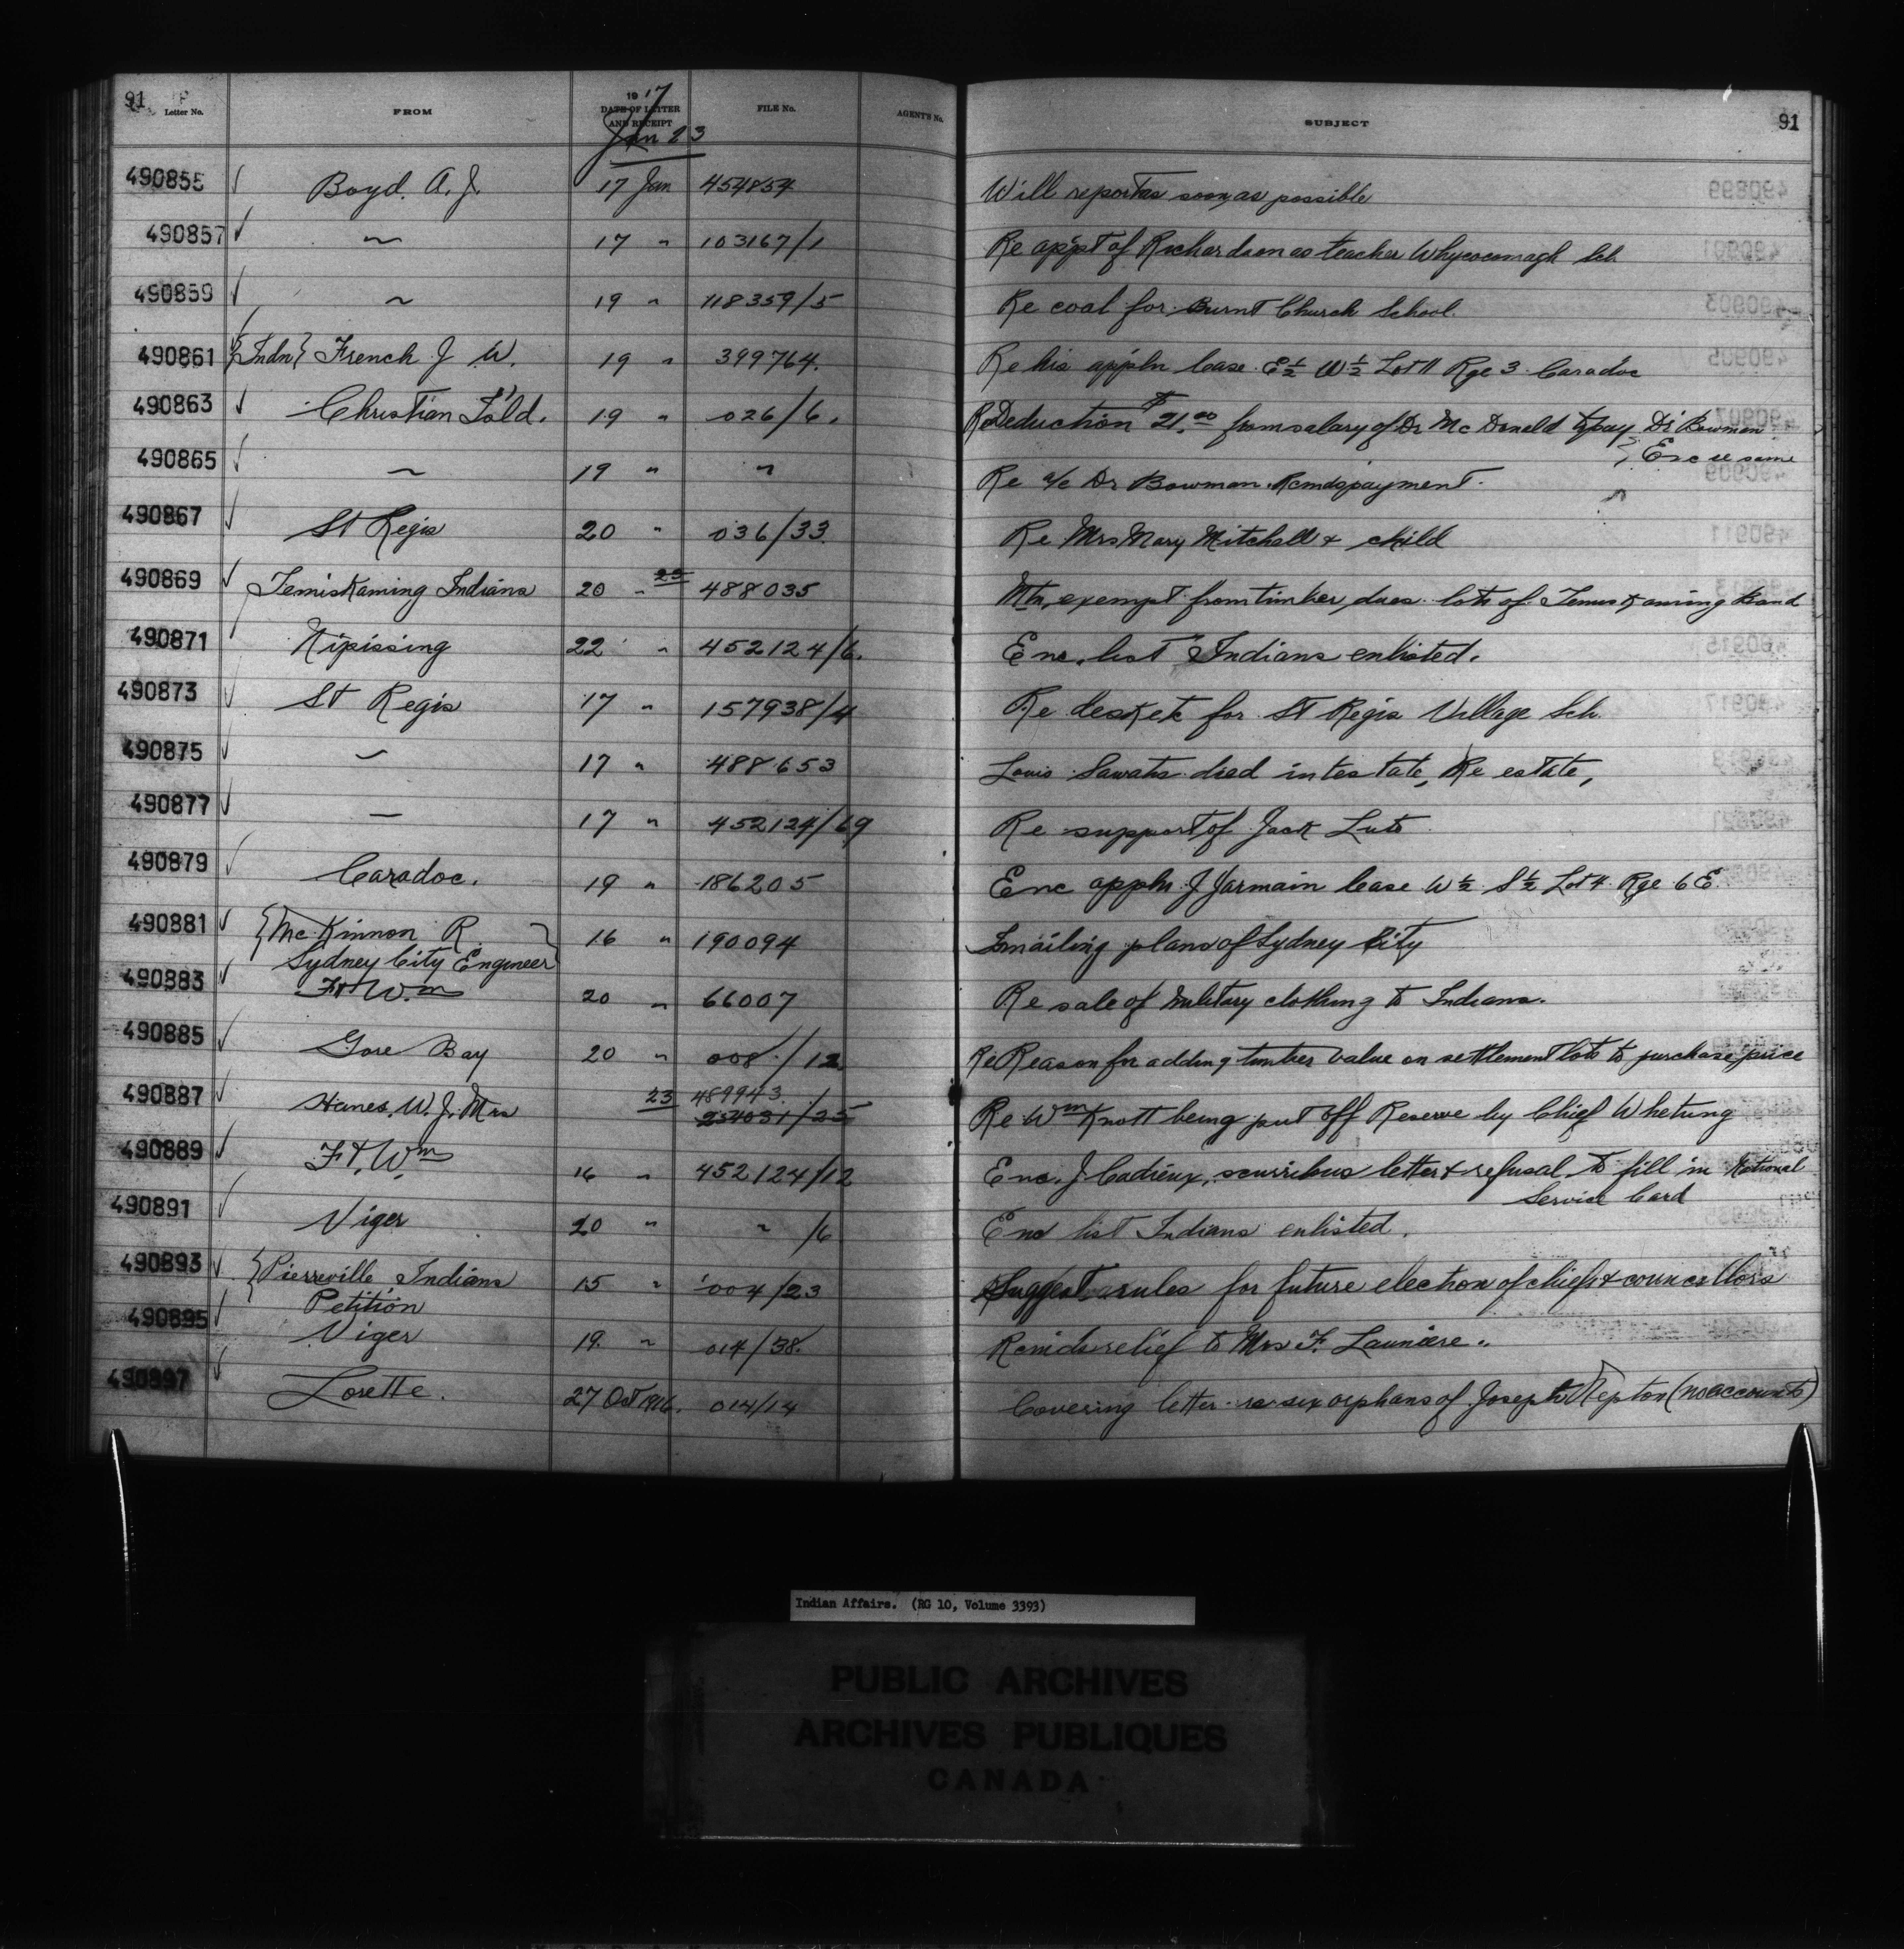 91 Letter No. FROM 1917 DATE OF LETTER AND RECEIPT FILE No. AGENT'S No. SUBJECT 91
Jan 23
490855 ✓ Boyd. A. J. 17 Jan 454854 Will report as soon as possible
490857 ✓ ~ 17 " 103167/1 Re app't of Richardson as teacher Whycocomagh Sch
490859 ✓ ~ 19 " 118359/5 Re coal for Burnt Church School.
490861 {Indn} French J W. 19 " 399764. Re his appln lease E½ W½ Lot 11 Rge 3 Caradoc
490863 ✓ Christian Is'ld. 19 " 026/6. Re Deduction $21.00 from salary of Dr McDonald to pay Dr Bowman
Enc re same
490865 ✓ ~ 19 " " Re a/c Dr Bowman. Rcmds payment.
490867 ✓ St Regis 20 " 036/33. Re Mrs Mary Mitchell & child
490869 ✓ Temiskaming Indians 20 " 23 488035 exempt from timber dues lots of Temiskaming Band
490871 Nipissing 22 " 452124/6. Enc. list Indians enlisted.
490873 ✓ St Regis 17 " 157938/4 Re desks etc for St Regis Village Sch.
490875 ✓ ~ 17 " 488653 Louis died intestate, Re estate,
490877 ✓ — 17 " 452124/69 Re support of Jack
490879 ✓ Caradoc. 19 " 186205 Enc appln J Jarmain lease W½ S½ Lot 4 Rge 6 E
490881 ✓ {McKinnon R } 16 " 190094 Is mailing plans of Sydney City
Sydney City Engineer
490883 ✓ Ft Wm 20 " 66007 Re sale of Military clothing to Indians.
490885 ✓ Gore Bay 20 " 008/12. Re Reason for adding timber value on settlement lots to purchase price
490887 ✓ Hanes, W. J. Mrs 23 489943. /1
234031/25 Re Wm Knott being put off Reserve by Chief Whetung
490889 ✓ Ft. Wm 16 " 452124/12 Enc. J Cadieux, scurribus letter & refusal to fill in National
Service Card
490891 ✓ Viger 20 " " /6 Enc list Indians enlisted.
490893 ✓ {Pierreville Indians 15 " 004/23 Suggest rules for future election of chiefs & councillors
Petition
490895 ✓ Viger 19. " 014/38. Rcmds relief to Mrs F. Launiere..
490897 ✓ Lorette. 27 Oct 1916. 014/14 Covering letter re six orphans of Joseph Nepton (no accounts)
Indian Affairs. (RG 10, Volume 3393)
PUBLIC ARCHIVES
ARCHIVES PUBLIQUES
CANADA